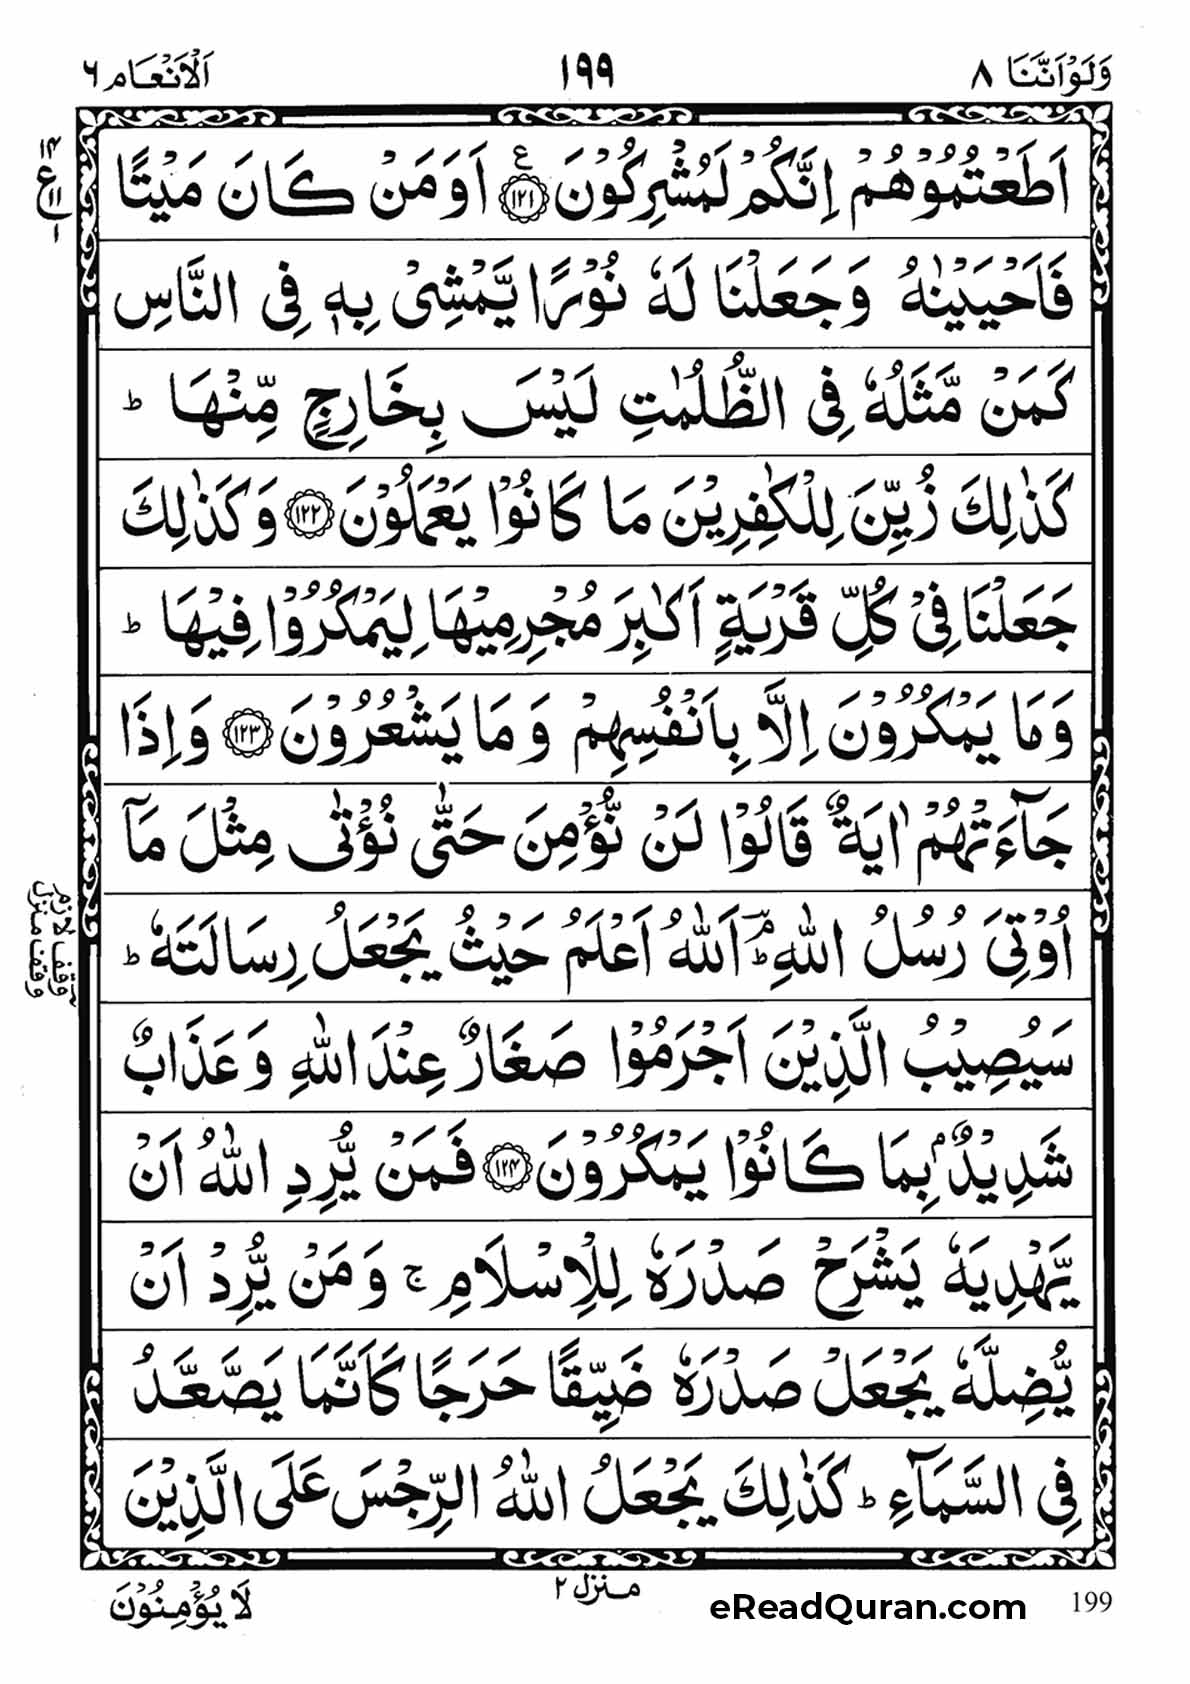 وَلَوْاَنَّنَا ٨ ١٩٩ اَلْاَنْعَام ٦
اَطَعْتُمُوْهُمْ اِنَّكُمْ لَمُشْرِكُوْنَ ۧ ﴿١٢١﴾ اَوَمَنْ كَانَ مَيْتًا
١٤ ع ١١ ١
فَاَحْيَيْنٰهُ وَجَعَلْنَا لَهٗ نُوْرًا يَّمْشِىْ بِهٖ فِى النَّاسِ
كَمَنْ مَّثَلُهٗ فِى الظُّلُمٰتِ لَيْسَ بِخَارِجٍ مِّنْهَا ؕ
كَذٰلِكَ زُيِّنَ لِلْكٰفِرِيْنَ مَا كَانُوْا يَعْمَلُوْنَ ﴿١٢٢﴾ وَكَذٰلِكَ
جَعَلْنَا فِىْ كُلِّ قَرْيَةٍ اَكٰبِرَ مُجْرِمِيْهَا لِيَمْكُرُوْا فِيْهَا ؕ
وَمَا يَمْكُرُوْنَ اِلَّا بِاَنْفُسِهِمْ وَمَا يَشْعُرُوْنَ ﴿١٢٣﴾ وَاِذَا
جَآءَتْهُمْ اٰيَةٌ قَالُوْا لَنْ نُّؤْمِنَ حَتّٰى نُؤْتٰى مِثْلَ مَآ
اُوْتِىَ رُسُلُ اللّٰهِ ؔؕۘ اَللّٰهُ اَعْلَمُ حَيْثُ يَجْعَلُ رِسَالَتَهٗ ؕ
وقف لازم
وقف منزل
سَيُصِيْبُ الَّذِيْنَ اَجْرَمُوْا صَغَارٌ عِنْدَ اللّٰهِ وَعَذَابٌ
شَدِيْدٌۢ بِمَا كَانُوْا يَمْكُرُوْنَ ﴿١٢٤﴾ فَمَنْ يُّرِدِ اللّٰهُ اَنْ
يَّهْدِيَهٗ يَشْرَحْ صَدْرَهٗ لِلْاِسْلَامِ ۚ وَمَنْ يُّرِدْ اَنْ
يُّضِلَّهٗ يَجْعَلْ صَدْرَهٗ ضَيِّقًا حَرَجًا كَاَنَّمَا يَصَّعَّدُ
فِى السَّمَآءِ ؕ كَذٰلِكَ يَجْعَلُ اللّٰهُ الرِّجْسَ عَلَى الَّذِيْنَ
لَا يُؤْمِنُوْنَ
منزل ٢
eReadQuran.com
199